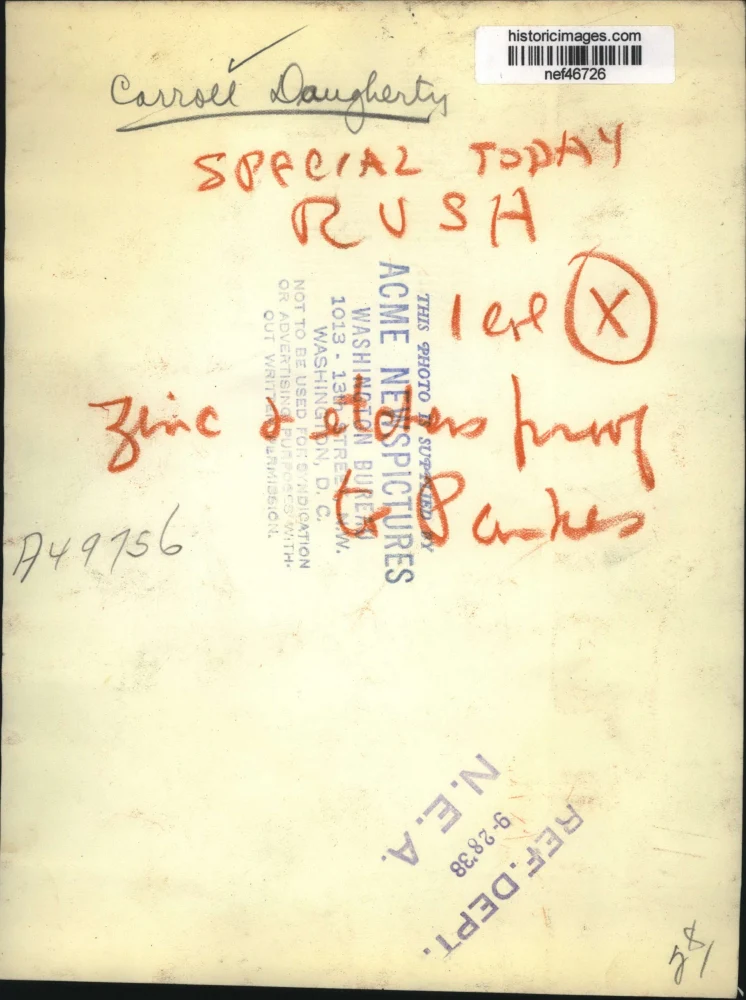 historicimages.com
nef46726
Carroll Daugherty
SPECIAL TODAY
RUSH
1 col X
zinc & editors proof
to
A49756
THIS PHOTO IS SUPPLIED BY
ACME NEWSPICTURES
WASHINGTON BUREAU
1013 - 13th STREET N.W.
WASHINGTON, D. C.
NOT TO BE USED FOR SYNDICATION
OR ADVERTISING PURPOSES WITH-
OUT WRITTEN PERMISSION.
N.E.A.
9-28'38
REF. DEPT.